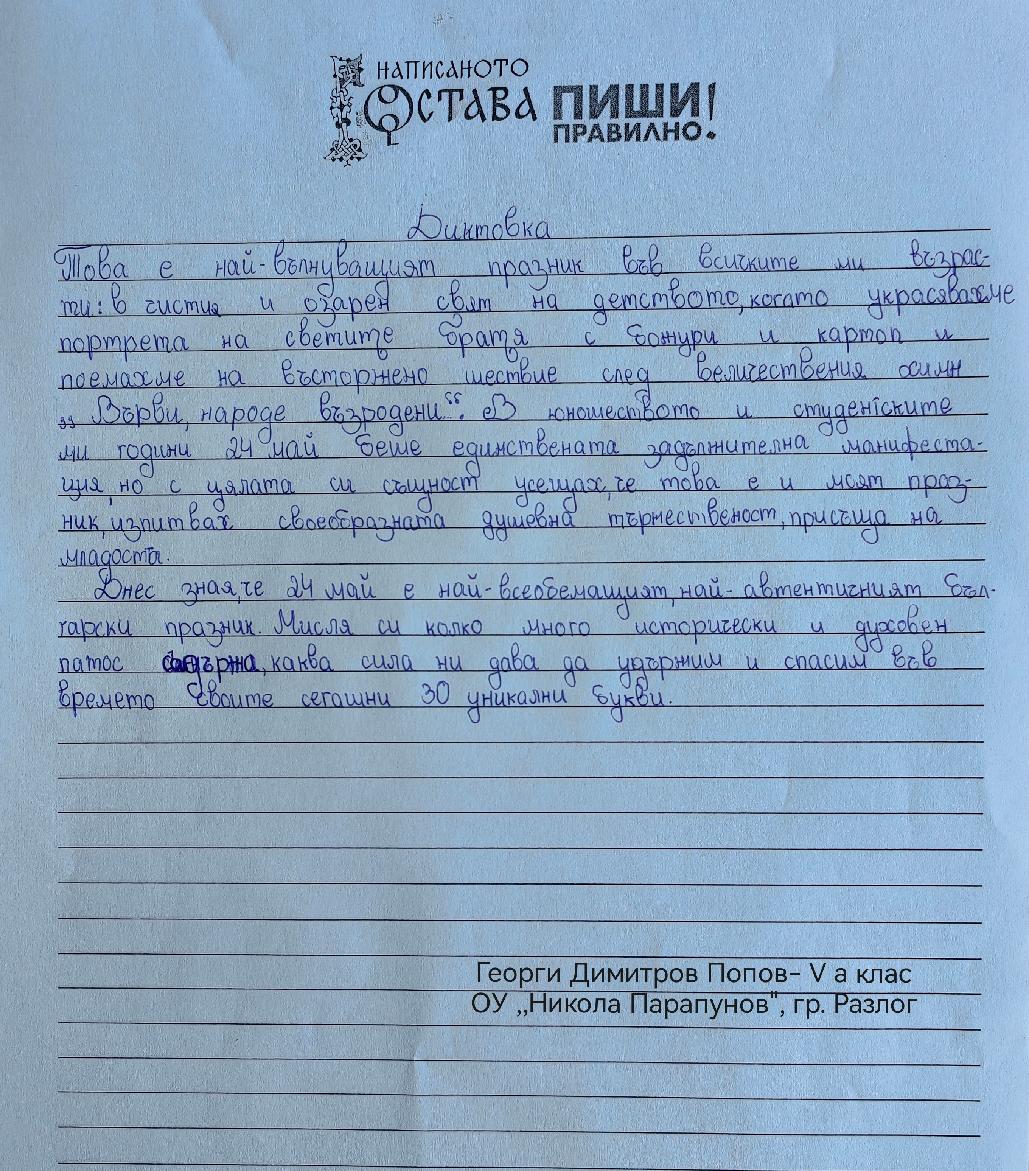 НАПИСАНОТО
ОСТАВА ПИШИ
ПРАВИЛНО!
Диктовка
Това е най-вълнуващият празник във всичките ми възрас-
ти: в чистия и озарен свят на детството, когато украсявахме
портрета на светите братя с божури и картоп и
поемахме на възторжено шествие след величествения химн
„Върви, народе възродени“. В юношеството и студентските
ми години 24 май беше единствената задължителна манифеста-
ция, но с цялата си същност усещах, че това е и моят праз-
ник, изпитвах своеобразната душевна тържественост, присъща на
младостта.
Днес зная, че 24 май е най-всеобемащият, най-автентичният бъл-
гарски празник. Мисля си колко много исторически и духовен
патос съдържа, каква сила ни дава да удържим и спасим във
времето своите сегашни 30 уникални букви.
Георги Димитров Попов- V а клас
ОУ ,,Никола Парапунов", гр. Разлог